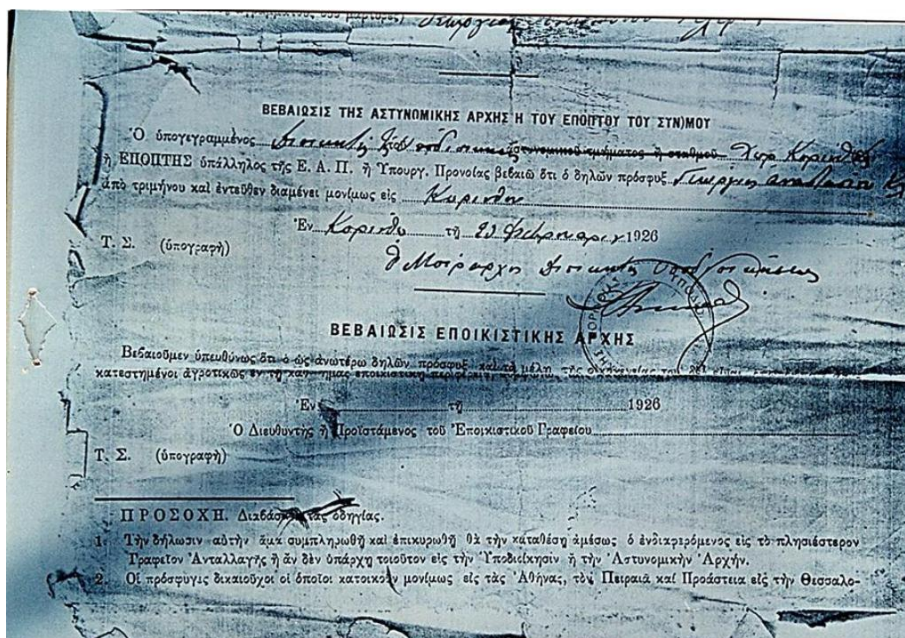 ΒΕΒΑΙΩΣΙΣ ΤΗΣ ΑΣΤΥΝΟΜΙΚΗΣ ΑΡΧΗΣ Η ΤΟΥ ΕΠΟΠΤΟΥ ΤΟΥ ΣΥΝ)ΜΟΥ
Ὁ ὑπογεγραμμένος Διοικητὴς ἀστυνομικοῦ τμήματος ἢ σταθμοῦ Χωρ Κορινθίας
ἢ ΕΠΟΠΤΗΣ ὑπάλληλος τῆς Ε. Α. Π. ἢ Ὑπουργ. Προνοίας βεβαιῶ ὅτι ὁ δηλῶν πρόσφυξ Γεώργιος
ἀπὸ τριμήνου καὶ ἐντεῦθεν διαμένει μονίμως εἰς Κόρινθον
Ἐν Κορίνθῳ τῇ 23 Φεβρουαρίου 1926
Τ. Σ. (ὑπογραφὴ)
Ὁ Μοίραρχος Διοικητὴς Ὑποδιοικήσεως
ΒΕΒΑΙΩΣΙΣ ΕΠΟΙΚΙΣΤΙΚΗΣ ΑΡΧΗΣ
Βεβαιοῦμεν ὑπευθύνως ὅτι ὁ ὡς ἀνωτέρω δηλῶν πρόσφυξ καὶ τὰ μέλη τῆς οἰκογενείας του
κατεστημένοι ἀγροτικῶς ἐν τῇ
Ἐν τῇ 1926
Ὁ Διευθυντὴς ἢ Προϊστάμενος τοῦ Ἐποικιστικοῦ Γραφείου
Τ. Σ. (ὑπογραφὴ)
ΠΡΟΣΟΧΗ. Διαβάσατε τὰς ὁδηγίας.
1. Τὴν δήλωσιν αὐτὴν ἅμα συμπληρωθῇ καὶ ἐπικυρωθῇ θὰ τὴν καταθέσῃ ἀμέσως ὁ ἐνδιαφερόμενος εἰς τὸ πλησιέστερον
Γραφεῖον Ἀνταλλαγῆς ἢ ἂν δὲν ὑπάρχῃ τοιοῦτον εἰς τὴν Ὑποδιοίκησιν ἢ τὴν Ἀστυνομικὴν Ἀρχήν.
2. Οἱ πρόσφυγες δικαιοῦχοι οἱ ὁποῖοι κατοικοῦν μονίμως εἰς τὰς Ἀθήνας, τὸν Πειραιᾶ καὶ Προάστεια εἰς τὴν Θεσσαλο-